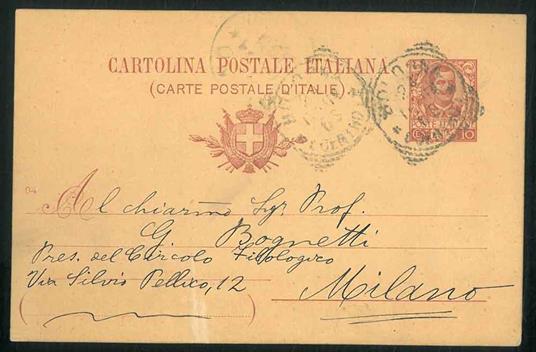 CARTOLINA POSTALE ITALIANA
(CARTE POSTALE D'ITALIE)
POSTE ITALIANE
10
Al chiarmo Sgr. Prof.
G. Bognetti
Pres. del Circolo Filologico
Via Silvio Pellico, 12
Milano